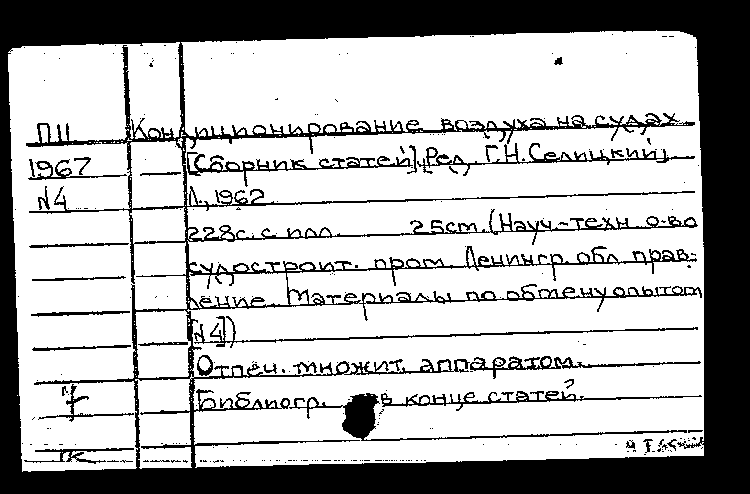 П11 Кондиционирование воздуха на судах
1967 [Сборник статей]. Ред. Г.Н. Селицкий
N4 Л., 1962.
228с. с илл. 25см. (Науч.-техн о-во
судостроит. пром. Ленингр. обл прав-
ление. Материалы по обмену опытом
[N4])
Отпеч. множит. аппаратом.
Библиогр. в конце статей.